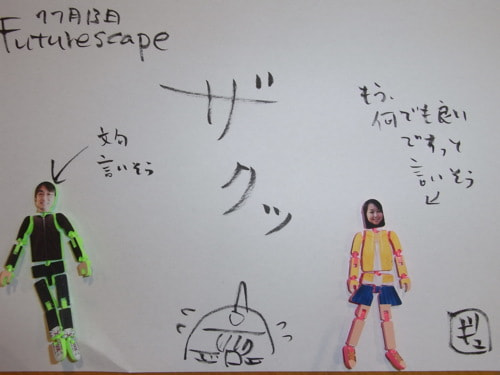 11月13日
Futurescape
ザクッ
文句
言いそう
もう、
何でも良い
ですって
言いそう
ギュ